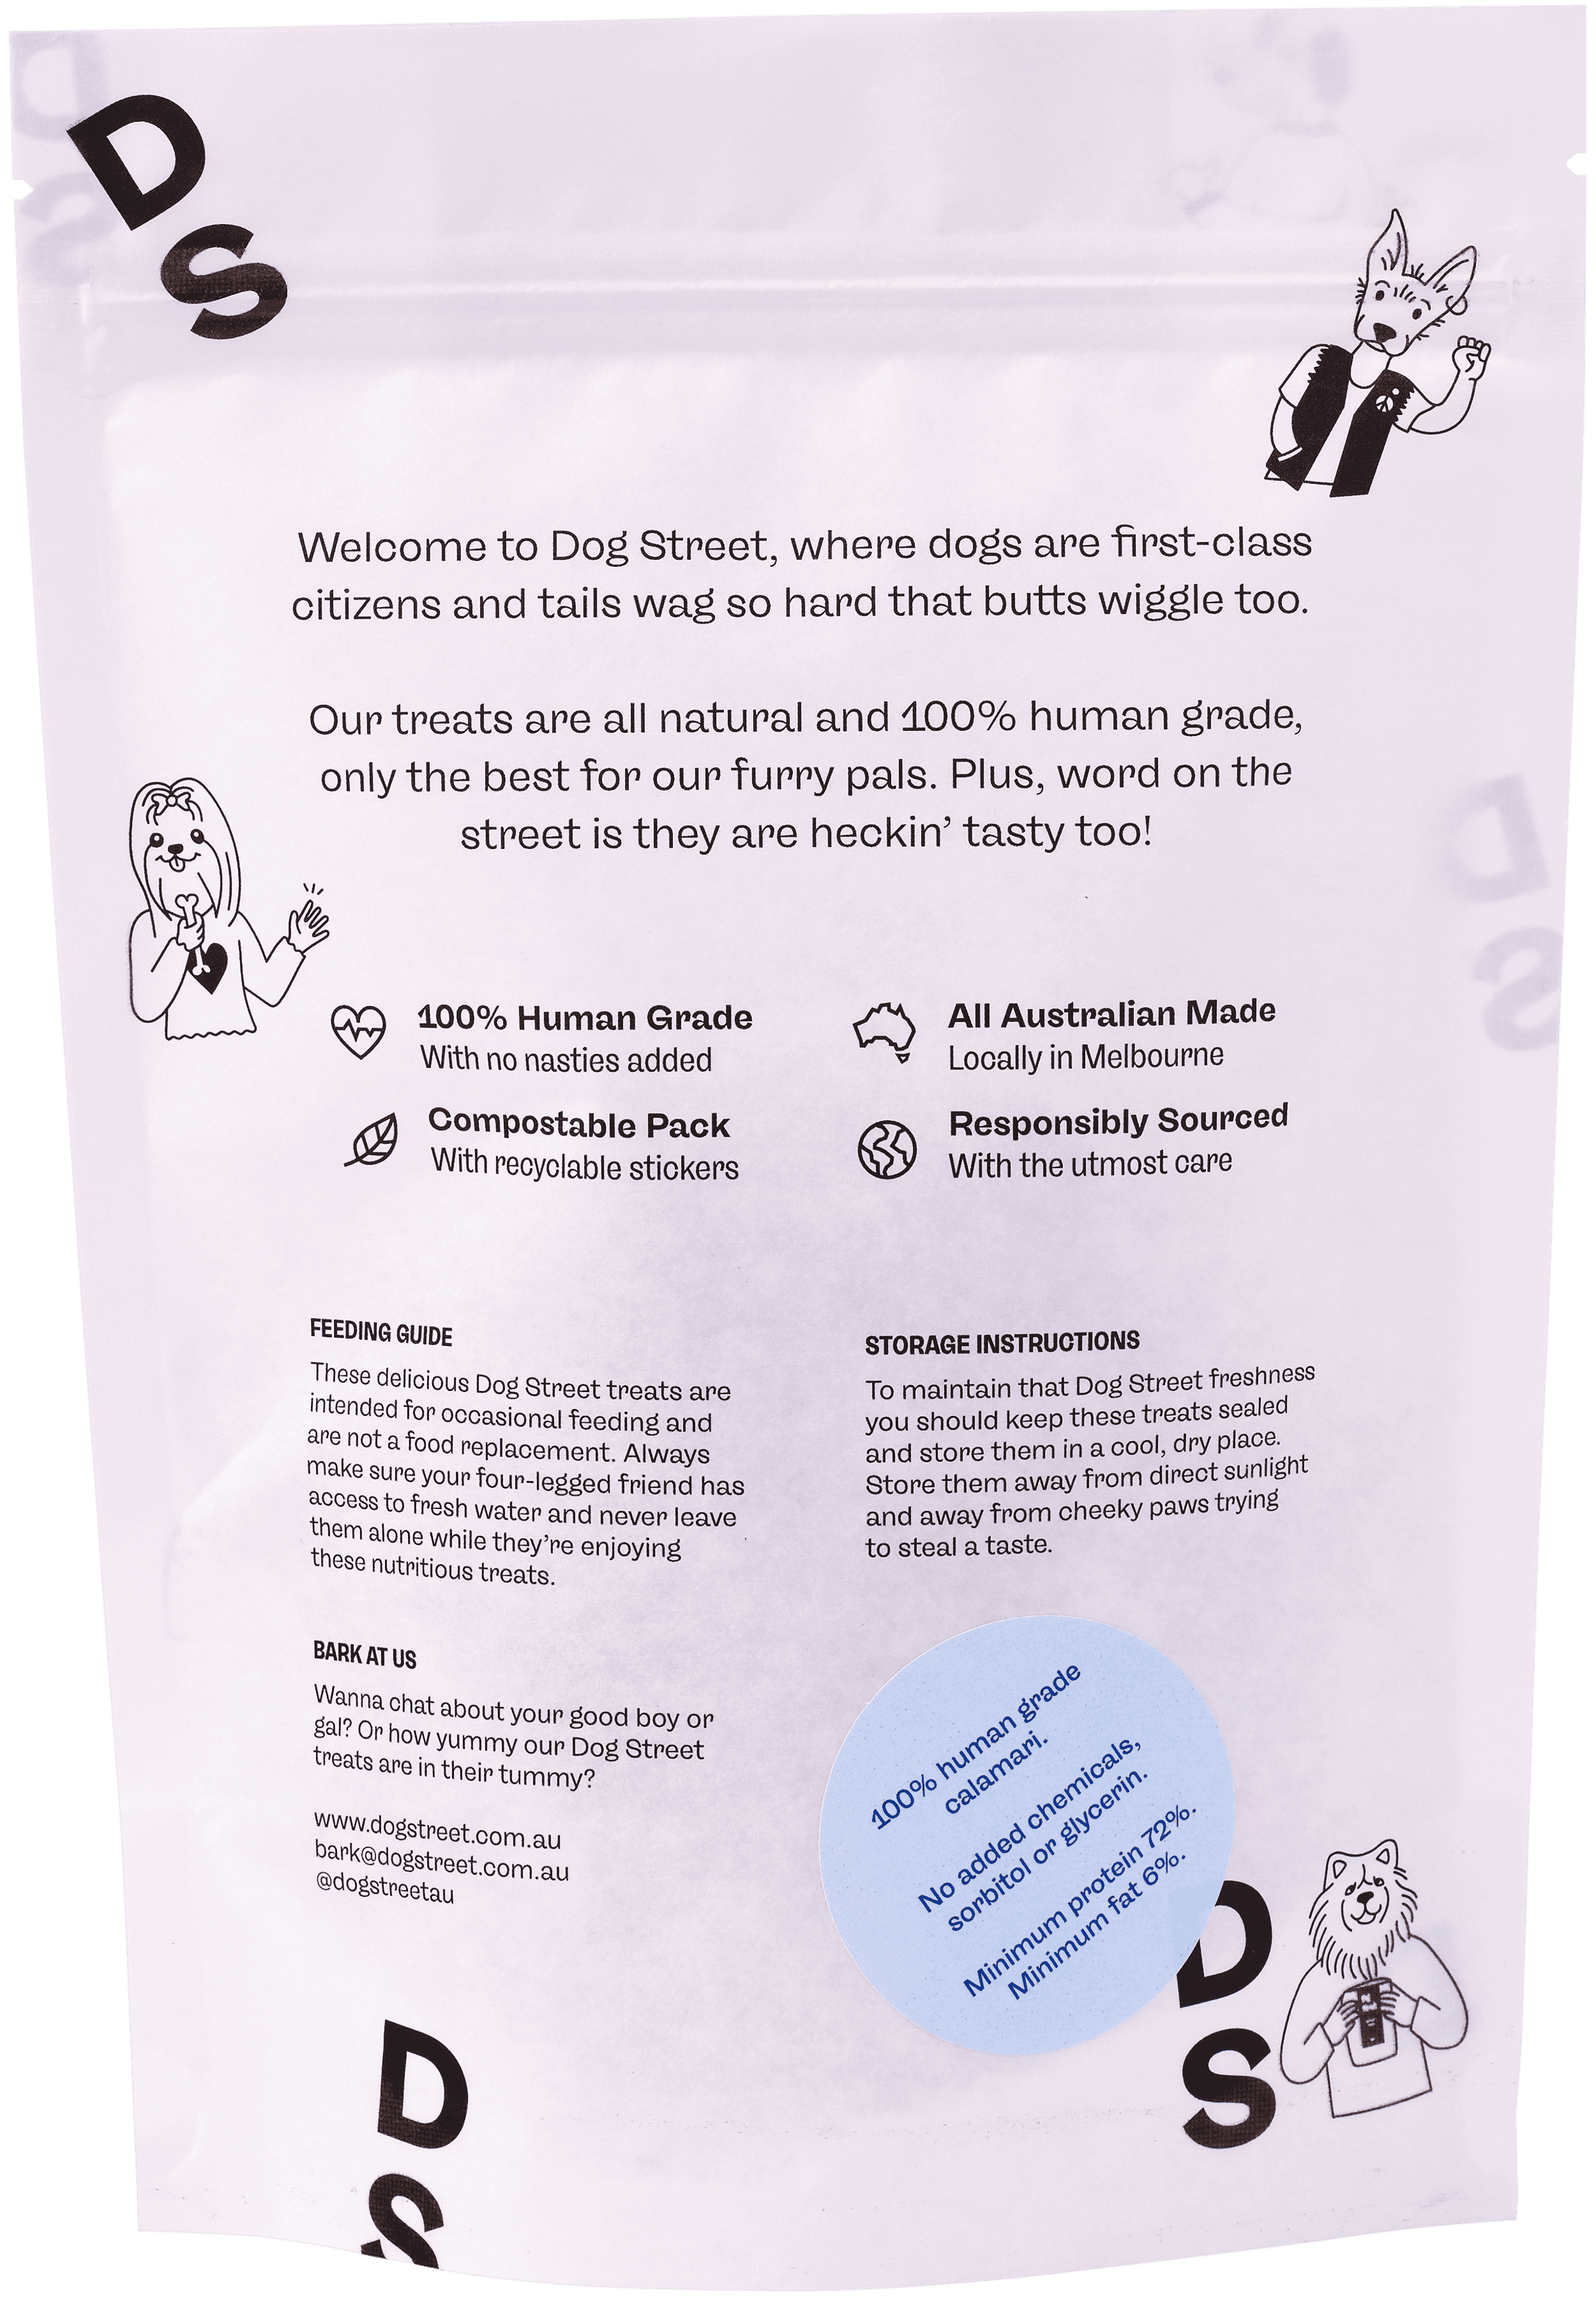 D
S
Welcome to Dog Street, where dogs are first-class
citizens and tails wag so hard that butts wiggle too.
Our treats are all natural and 100% human grade,
only the best for our furry pals. Plus, word on the
street is they are heckin’ tasty too!
100% Human Grade
With no nasties added
All Australian Made
Locally in Melbourne
Compostable Pack
With recyclable stickers
Responsibly Sourced
With the utmost care
FEEDING GUIDE
These delicious Dog Street treats are
intended for occasional feeding and
are not a food replacement. Always
make sure your four-legged friend has
access to fresh water and never leave
them alone while they’re enjoying
these nutritious treats.
STORAGE INSTRUCTIONS
To maintain that Dog Street freshness
you should keep these treats sealed
and store them in a cool, dry place.
Store them away from direct sunlight
and away from cheeky paws trying
to steal a taste.
BARK AT US
Wanna chat about your good boy or
gal? Or how yummy our Dog Street
treats are in their tummy?
www.dogstreet.com.au
bark@dogstreet.com.au
@dogstreetau
100% human grade
calamari.
No added chemicals,
sorbitol or glycerin.
Minimum protein 72%.
Minimum fat 6%.
D
S
D
S